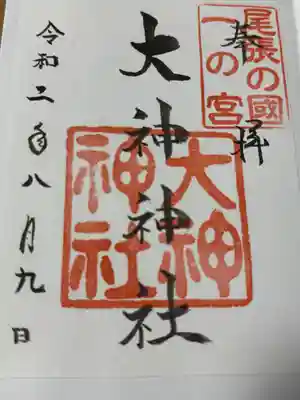 奉拝
尾張の國
一の宮
大神神社
大神
神社
令和二年八月九日